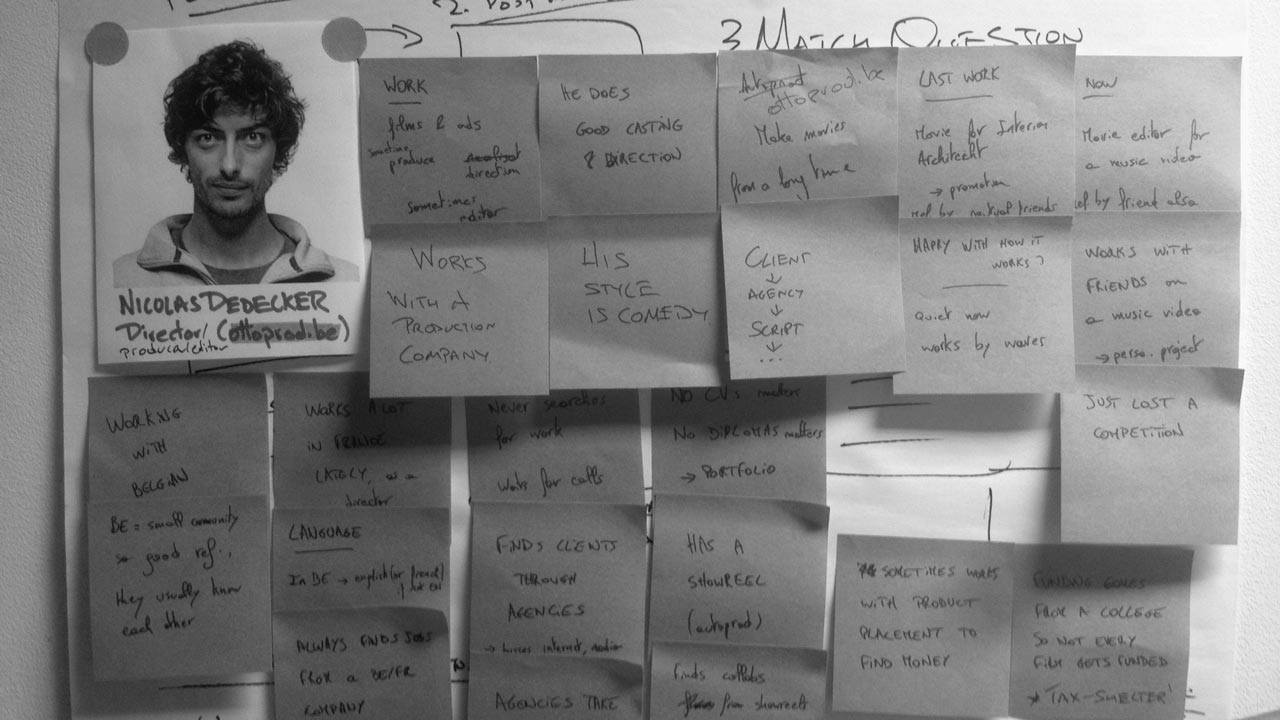 2. POST
3 MATCH QUESTION
NICOLAS DEDECKER
Director/(ottoprod.be)
producer/editor
WORK
films & ads
sometimes
produce
direction
sometimes
editor
HE DOES
GOOD CASTING
& DIRECTION
Autoprod
ottoprod.be
Make movies
from a long time
LAST WORK
Movie for Interior
Architecht
→ promotion
ref by mutual friends
NOW
Movie editor for
a music video
ref by friend also
WORKS
WITH A
PRODUCTION
COMPANY
HIS
STYLE
IS COMEDY
CLIENT
↓
AGENCY
↓
SCRIPT
↓
...
HAPPY WITH HOW IT
WORKS?
Quiet now
works by waves
WORKS WITH
FRIENDS on
a music video
→ perso. project
WORKING
WITH
BELGIAN
WORKS A LOT
IN FRANCE
LATELY, as a
director
Never searches
for work
Waits for calls
NO CV's matters
No DIPLOMAS matters
→ PORTFOLIO
JUST LOST A
COMPETITION
BE = small comunity
so good ref.,
they usually know
each other
LANGUAGE
In BE → english (or french)
ALWAYS FINDS JOBS
FROM a BE/FR
COMPANY
FINDS CLIENTS
THROUGH
AGENCIES
→ internet,
AGENCIES TAKE
HAS A
SHOWREEL
(autoprod)
Finds collabs
from showreels
SOMETIMES WORKS
WITH PRODUCT
PLACEMENT TO
FIND MONEY
FUNDING COMES
FROM A COLLEGE
SO NOT EVERY
FILM GETS FUNDED
'TAX-SHELTER'